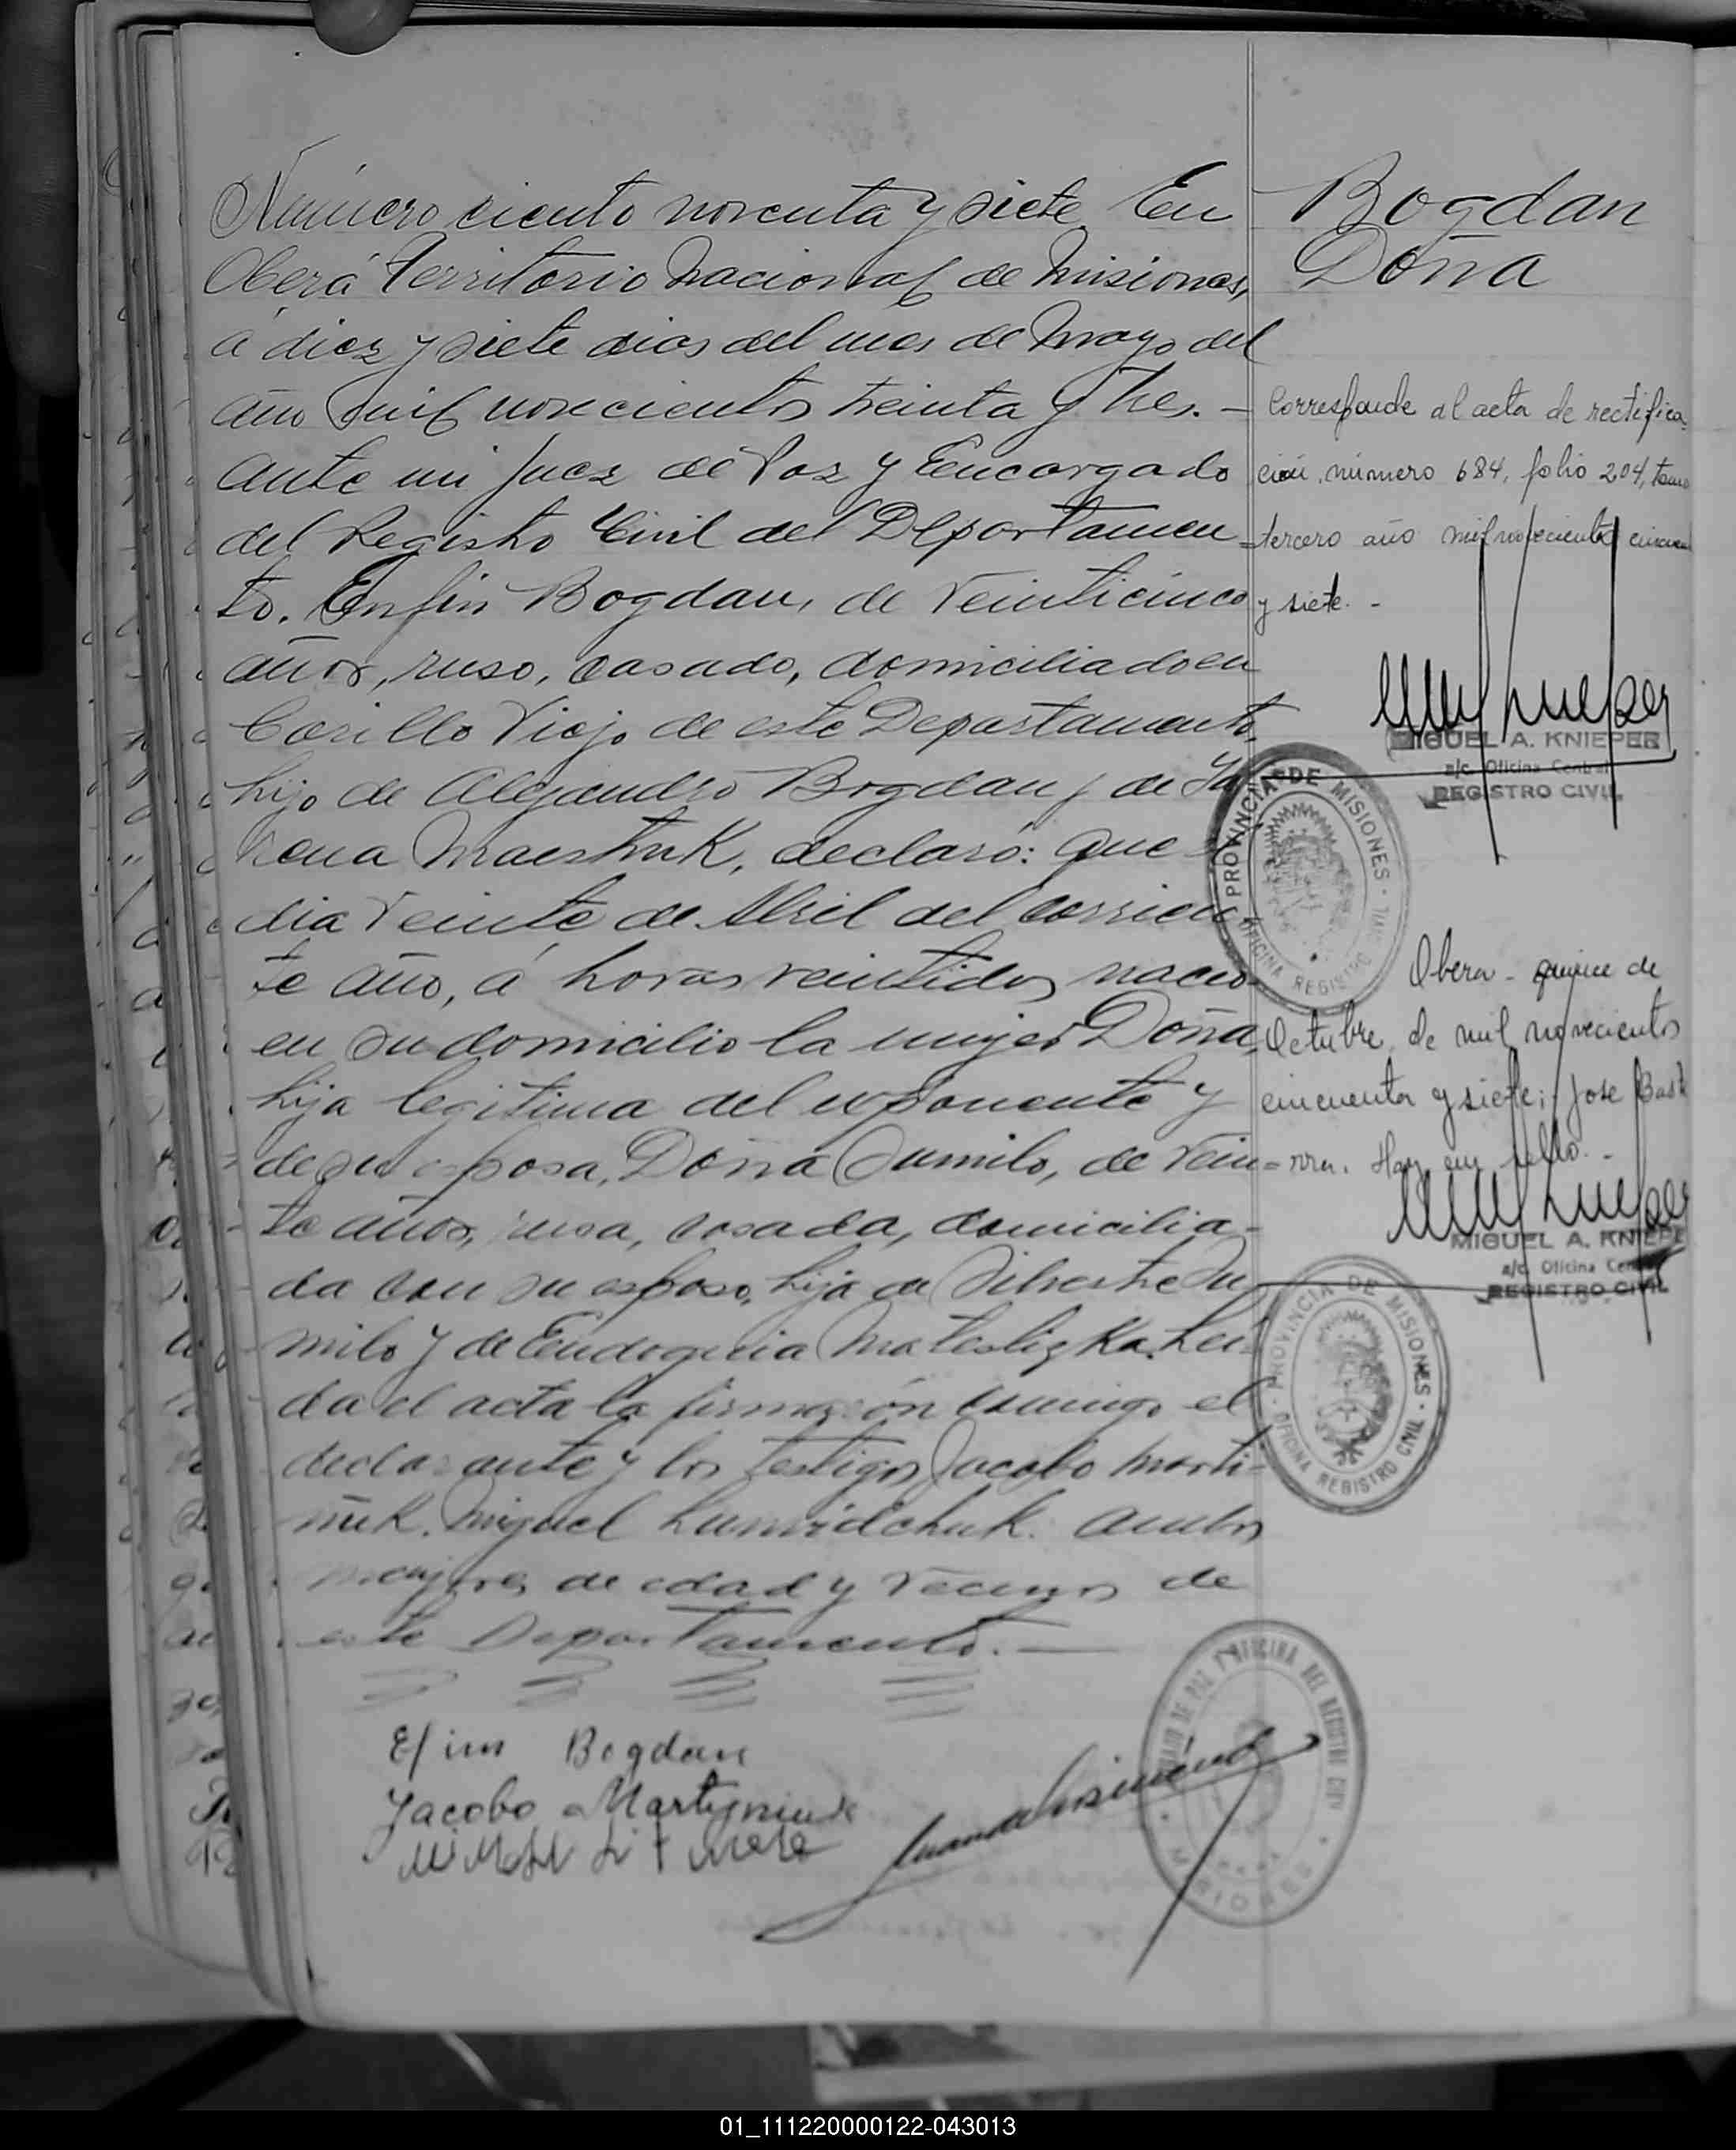 Número ciento noventa y siete. En
Oberá Territorio Nacional de Misiones,
á diez y siete dias del mes de Mayo del
año mil novecientos treinta y tres. —
ante mi Juez de Paz y Encargado
del Registro Civil del Departamen-
to. Enfin Bogdan, de veinticinco
años, ruso, casado, domiciliado en
Viejo de este Departamento,
hijo de Alejandro Bogdan y de
Maestruk, declaró: que
dia veinte de Abril del corrien-
te año, á horas veintidos nacio
en su domicilio la mujer Doña,
hija legitima del exponente y
de su esposa, Doña Sumilo, de vein-
te años, rusa, casada, domicilia-
da con su esposo, hija de Silvestre Su-
milo y de Lei-
da el acta la firmarón conmigo el
declarante y los testigos Jacobo Marti-
ñuk. Miguel ambos
mayores de edad y vecinos de
este Departamento. —
Efim Bogdan
Jacobo Martyniuk
Bogdan
Doña
Corresponde al acta de rectifica-
ción, número 684, folio 204, tomo
tercero año mil novecientos cincuen
y siete. -
MIGUEL A. KNIEPER
a/c. Oficina Central
REGISTRO CIVIL
PROVINCIA DE MISIONES
OFICINA REGISTRO CIVIL
Obera - quince de
Octubre, de mil novecientos
cincuenta y siete; Jose
Hay un sello. -
MIGUEL A. KNIEPE
a/c. Oficina Cen
REGISTRO CIVIL
PROVINCIA DE MISIONES
OFICINA REGISTRO CIVIL
JUZGADO DE PAZ Y OFICINA DEL REGISTRO CIVIL
MISIONES
01_111220000122-043013